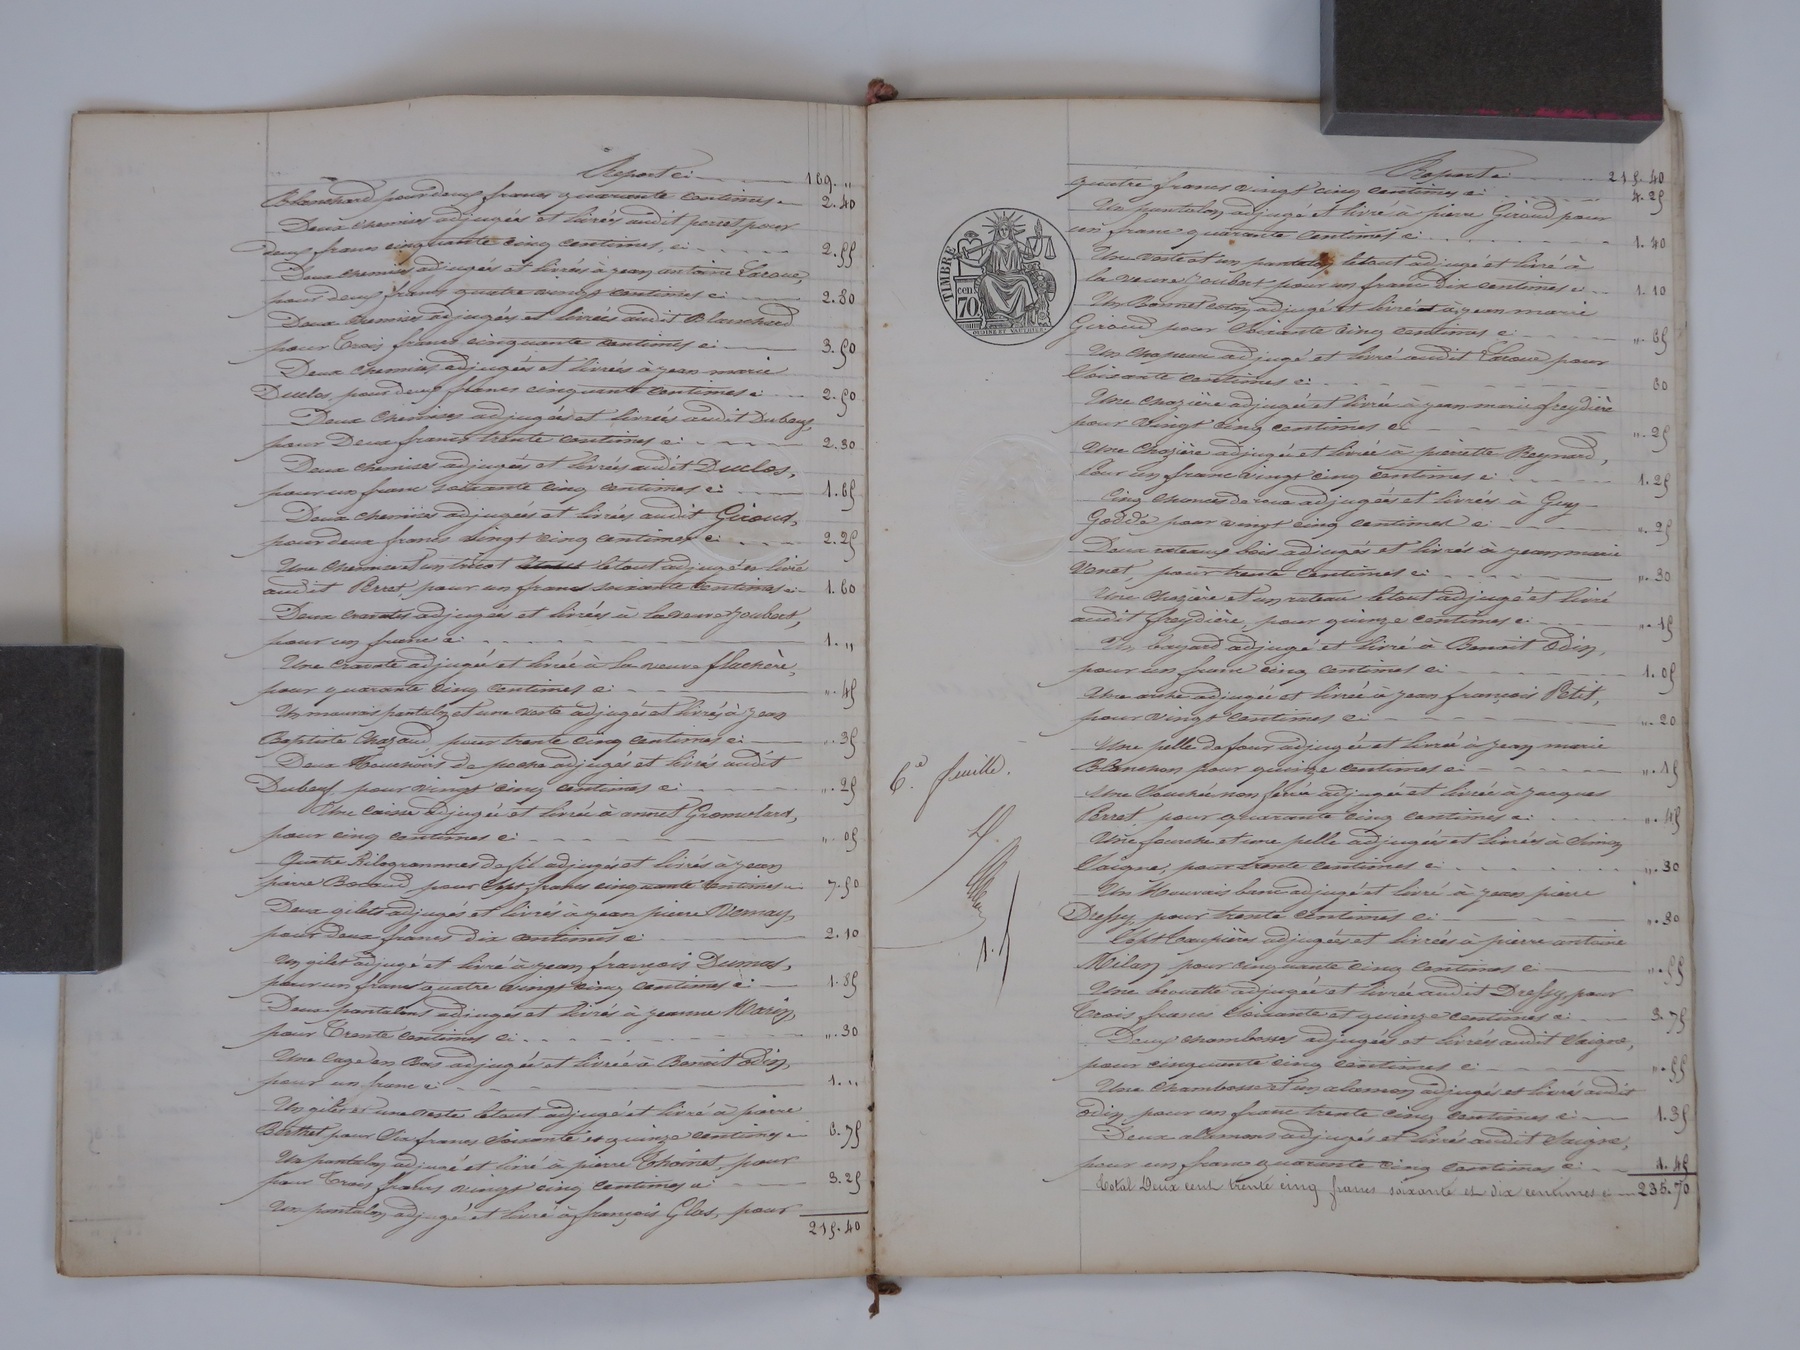 Report ci 169. "
Blanchard pour deux francs quarante centimes 2.40
Deux chemises adjugées et livrés audit perret pour
deux francs cinquante cinq centimes, ci 2.55
Deux chemises adjugées et livrés à jean antoine Lacoue,
pour deux francs quatre vingts centimes ci 2.80
Deux chemises adjugées et livrés audit Blanchard
pour trois francs cinquante centimes ci 3.50
Deux chemises adjugées et livrés à jean marie
Duclos, pour deux francs cinquante centimes ci 2.50
Deux chemises adjugées et livrées audit Dubeuf,
pour Deux francs trente centimes ci 2.30
Deux chemises adjugées et livrées audit Duclos,
pour un franc soixante cinq centimes ci 1.65
Deux chemises adjugées et livrées audit Giroud,
pour deux francs vingt cinq centimes ci 2.25
Une chemise et un tricot le tout adjugé et livré
audit Perret, pour un franc soixante centimes ci 1.60
Deux cravates adjugées et livrées à la veuve Joubert,
pour un franc ci 1. "
Une cravate adjugée et livrée à la veuve flachère,
pour quarante cinq centimes ci ". 45
Un mauvais pantalon et une veste adjugés et livrés à jean
Baptiste Chazaud pour trente cinq centimes ci ". 35
Deux Mouchoirs de poche adjugés et livrés audit
Dubeuf pour vingt cinq centimes ci ". 25
Une caisse adjugée et livrée à annet
pour cinq centimes ci ". 05
Quatre Kilogrammes de fil adjugés et livrés à jean
pierre Bocaud pour Sept francs cinquante centimes 7.50
Deux gilets adjugés et livrés à jean pierre Vernay,
pour deux francs dix centimes ci 2.10
Un gilet adjugé et livré à jean françois Dumas,
pour un franc quatre vingt cinq centimes ci 1.85
Deux pantalons adjugés et livrés à jeanne Marin,
pour Trente centimes ci ". 30
Une cage en Bois adjugée et livrée à Benoit Odin,
pour un franc ci 1. "
Un gilet et une veste le tout adjugé et livré à pierre
Berthet pour Six francs Soixante et quinze centimes 6.75
Un pantalon adjugé et livré à pierre Thoinet, pour
pour Trois francs vingt cinq centimes ci 3.25
Un pantalon adjugé et livré à françois Glas, pour
215.40
Report ci 215.40
quatre francs vingt cinq centimes ci 4.25
Un pantalon adjugé et livré à pierre Giraud pour
un franc quarante centimes ci 1.40
Une veste et un pantalon le tout adjugé et livré à
la veuve Joubert, pour un franc Dix centimes ci 1.10
Un Bonnet coton adjugé et livré à jean marie
Giraud pour Soixante cinq centimes ci ". 65
Un chapeau adjugé et livré audit Lacoue pour
Soixante centimes ci 60
Une chazière adjugée et livrée à jean marie freydière
pour vingt cinq centimes ci ". 25
Une chazière adjugée et livrée à pierrette Reynard,
Pour un franc vingt cinq centimes ci 1.25
Cinq adjugées et livrées à Guy
Goddé pour vingt cinq centimes ci ". 25
Deux rateaux bois adjugés et livrés à jean marie
Venet, pour trente centimes ci ". 30
Une chazière et un rateau le tout adjugé et livré
audit freydière, pour quinze centimes ci ". 15
Un bayard adjugé et livré à Benoit Odin,
pour un franc cinq centimes ci 1.05
Une arche adjugée et livrée à jean françois Petit,
pour vingt centimes ci ". 20
Une pelle de four adjugée et livrée à jean marie
Blanchon pour quinze centimes ci ". 15
Une non ferrée adjugée et livrée à jacques
Perret, pour quarante cinq centimes ci ". 45
Une fourche et une pelle adjugées et livrées à Simon
Saigne, pour trente centimes ci ". 30
Un Mauvais banc adjugé et livré à jean pierre
Dressy, pour trente centimes ci ". 30
Sept taupières adjugées et livrées à pierre antoine
Milan pour cinquante cinq centimes ci ". 55
Une brouette adjugée et livrée audit Dressy, pour
Trois francs Soixante et quinze centimes ci 3.75
Deux chambosses adjugées et livrées audit Saigne,
pour cinquante cinq centimes ci ". 55
Une chambosse et un alamon adjugés et livrés audit
Odin pour un franc trente cinq centimes ci 1.35
Deux alamons adjugés et livrés audit Saigne,
pour un franc quarante cinq centimes ci 1.45
Total Deux cent trente cinq francs soixante et dix centimes ci 235.70
TIMBRE
cen.
70
6.e feuille.